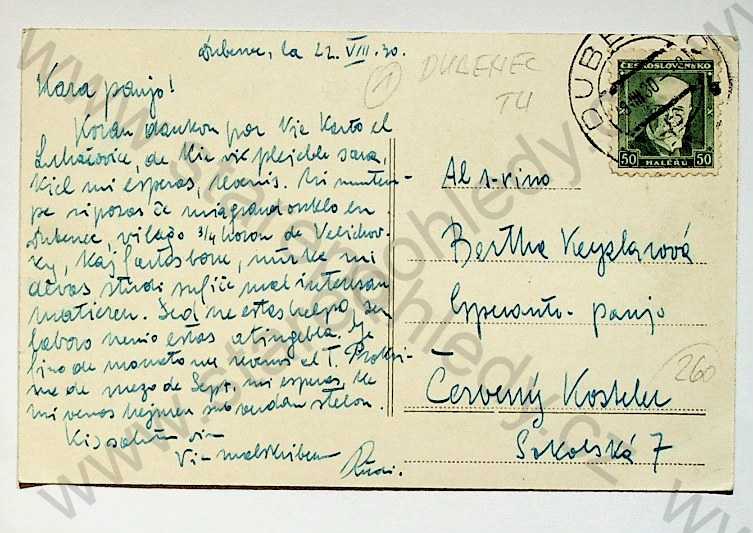 Dubenec, la 22. VIII. 30.
Kara panjo!
Koran dankon por Via Karto el
Luhačovice, de kie vi plejeble sana,
kiel mi esperas, revenis. Mi nuntem-
pe ripozas ĉe mia grandonklo en
Dubenec, vilaĝo 3/4 horon de Velichov-
ky, kaj fartas bone, nur ke mi
devas studi sufiĉe malinteresan
materion. Sed ne estas helpo, sen
laboro nenio estas atingebla. Je
fino de monato mi revenos al T. Proksi-
me de mezo de Sept. mi esperas, ke
mi venos hejmen sub verdan stelon.
Kissalutas vin
Via
Rudi.
① DUBENEC
TU
DUBENEC
ČESKOSLOVENSKO
50 HALÉŘŮ 50
Al s-rino
Bertha Keyzlarová
Esperanto-panjo
Červený Kostelec
Sokolská 7
260
www.starepohledy.cz